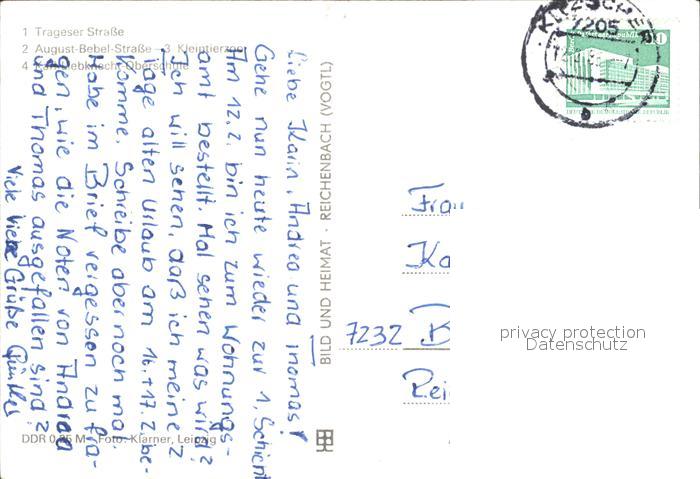 1 Trageser Straße
2 August-Bebel-Straße 3 Kleintierzoo
4 Karl-Liebknecht-Oberschule
Liebe Karin, Andrea und Thomas!
Gehe nun heute wieder zur 1. Schicht
Am 12.2. bin ich zum Wohnungs-
amt bestellt. Mal sehen was wird?
Ich will sehen, daß ich meine 2
Tage alten Urlaub am 16.+17.2. be-
komme. Schreibe aber noch mal.
Habe im Brief vergessen zu fra-
gen, wie die Noten von Andrea
und Thomas ausgefallen sind?
Viele liebe Grüße
DDR 0,25 M Foto: Klarner, Leipzig
BILD UND HEIMAT · REICHENBACH (VOGTL)
KITZSCHER
7205
Frau
Ka
7232 B
Rei
privacy protection
Datenschutz